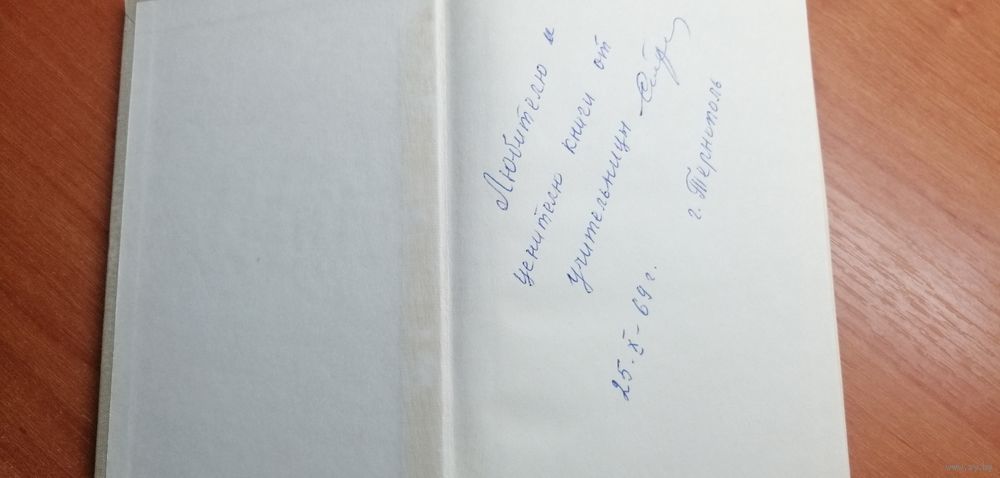 Любителю и
ценителю книги от
учительницы
25-X-69 г.
г. Тернополь
www.ay.by